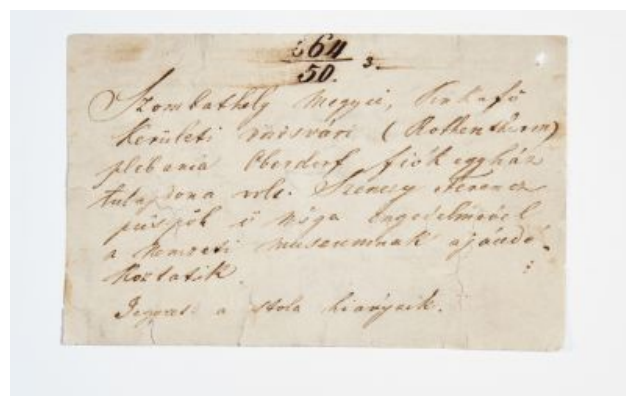 64
50. 3.
Szombathely megyei,
kerületi vörösvári (Rothenthurm)
plebania Oberdorf fiók egyház
tulajdona volt. Szenczy Ferencz
püspök ő nsga engedelmével
a nemzeti museumnak ajándé-
koztatik.
a stola hiányzik.